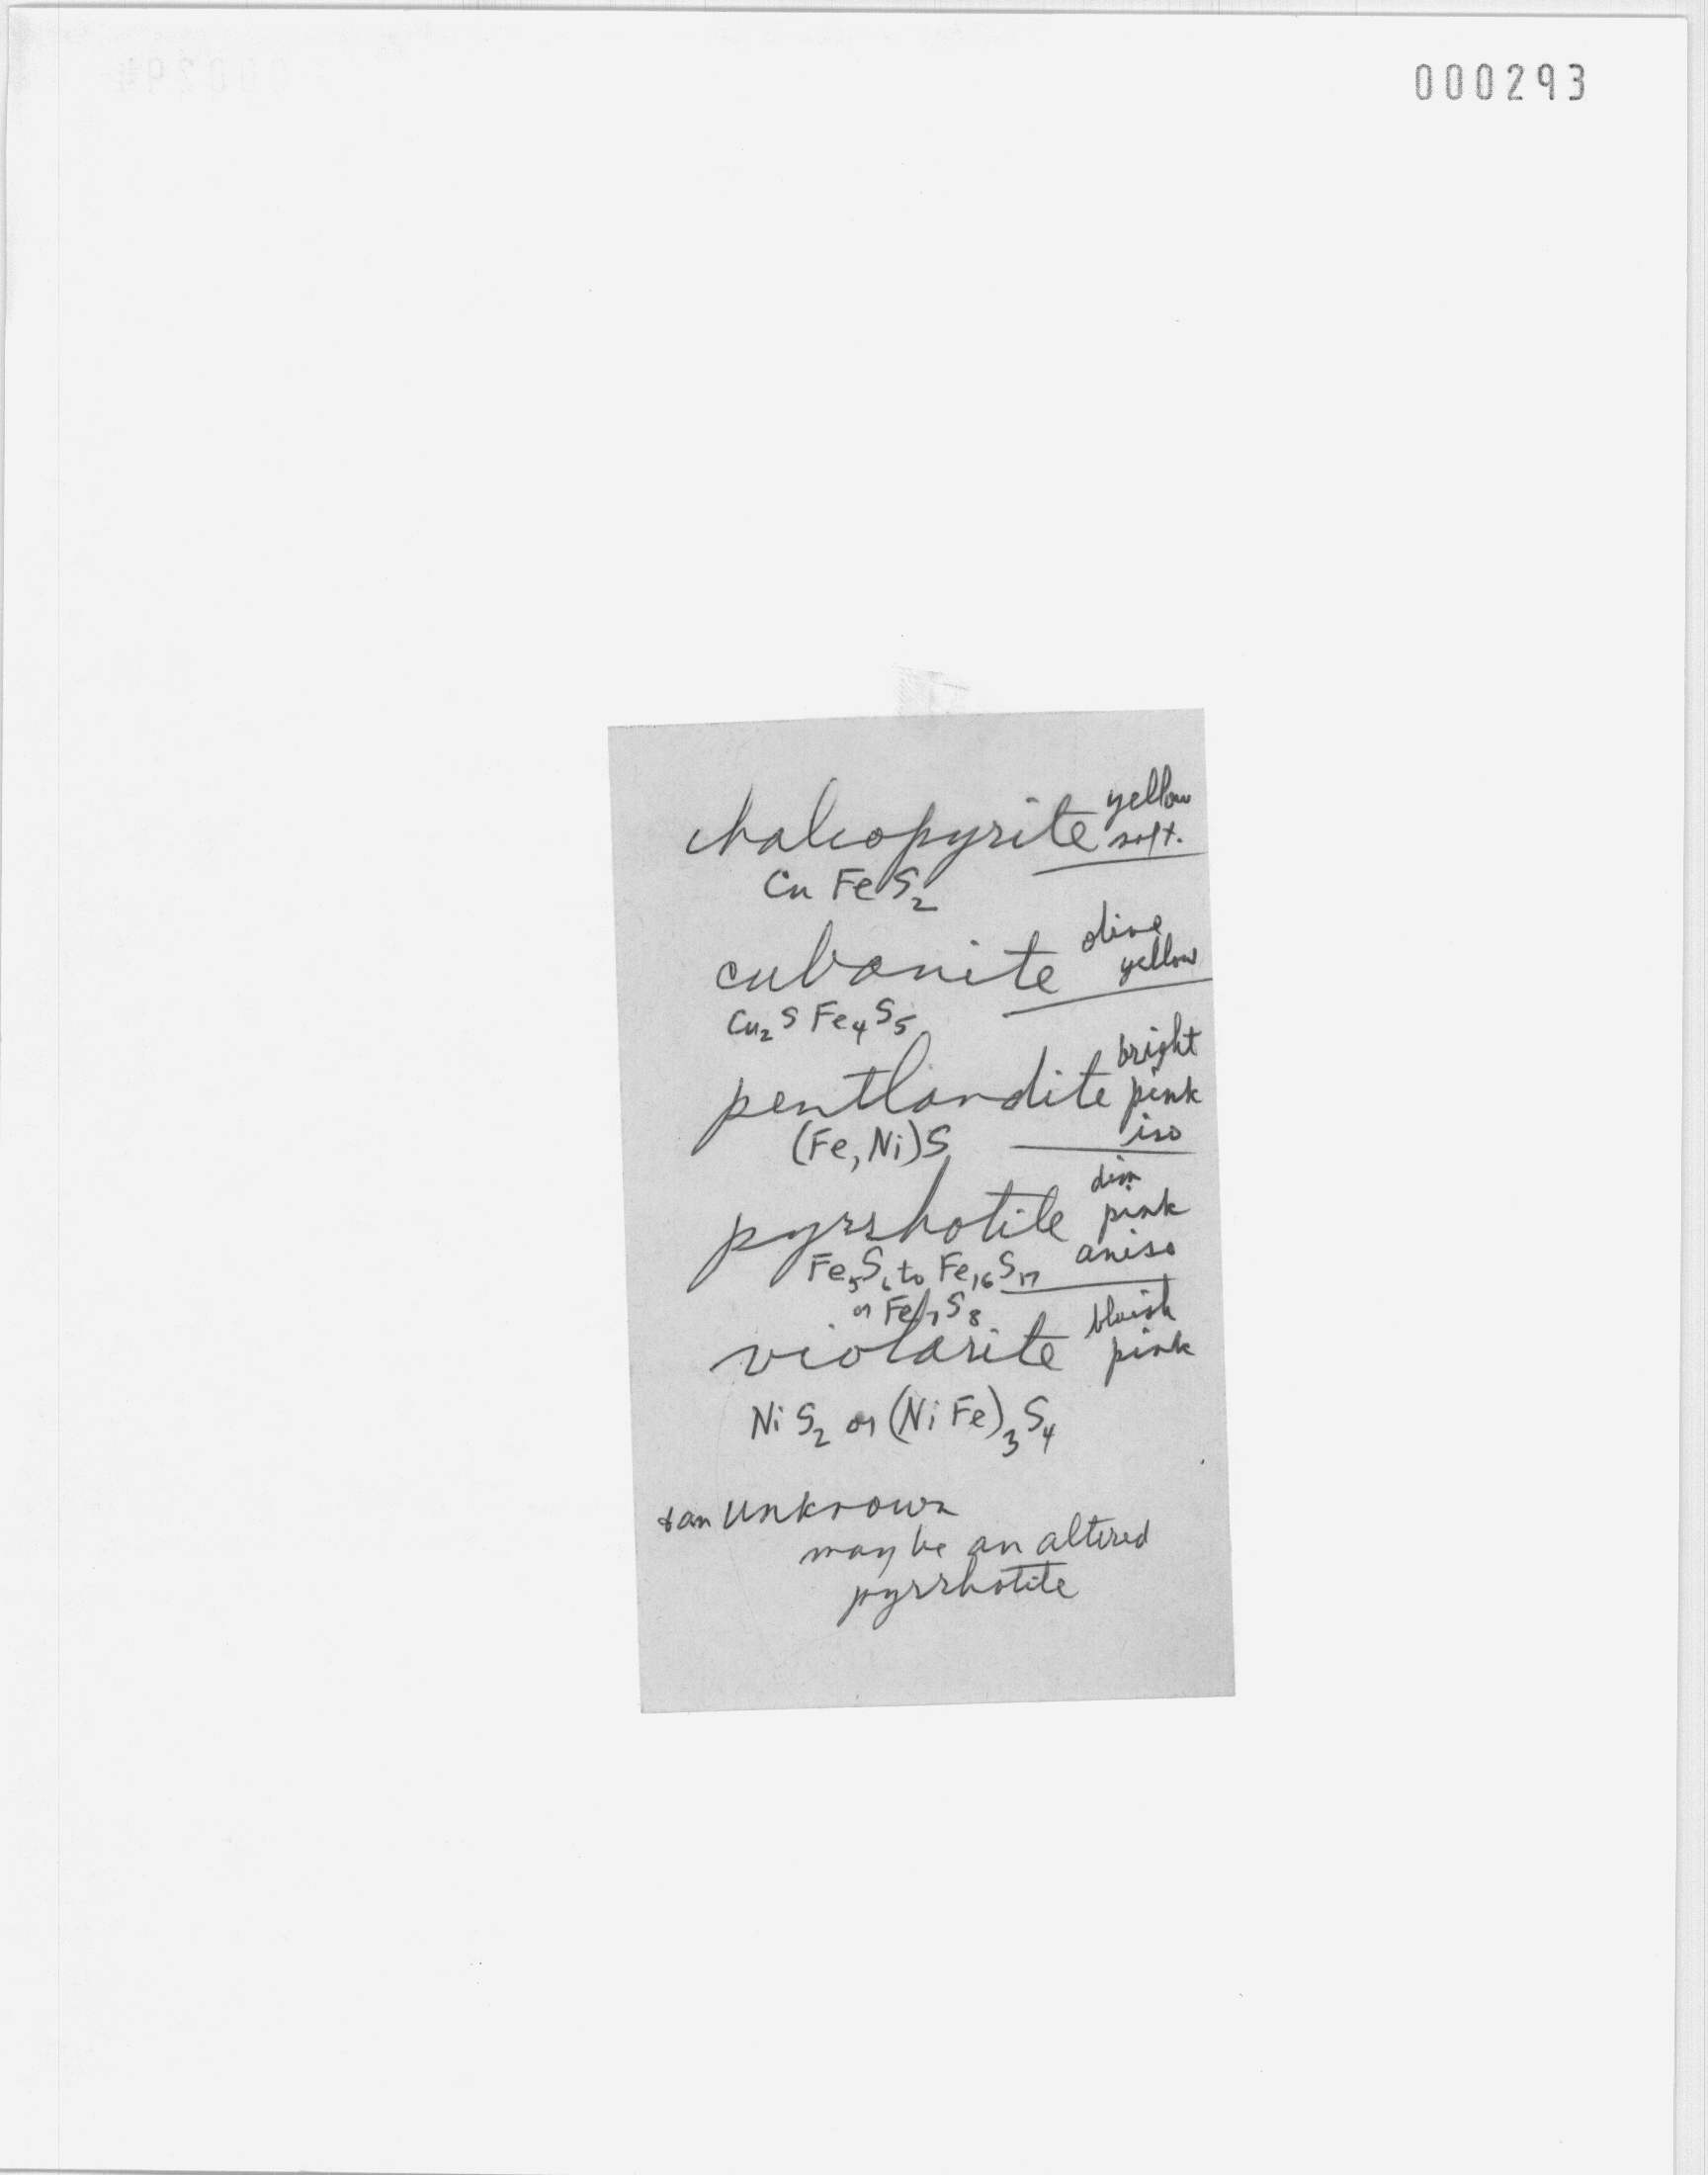 000293
chalcopyrite yellow soft.
Cu Fe S₂
cubanite olive yellow
Cu₂ S Fe₄ S₅
pentlandite bright pink iso
(Fe, Ni) S
pyrrhotite dim pink aniso
Fe₅S₆ to Fe₁₆S₁₇
or Fe₇S₈
violarite bluish pink
Ni S₂ or (Ni Fe)₃ S₄
unknown
may be an altered
pyrrhotite